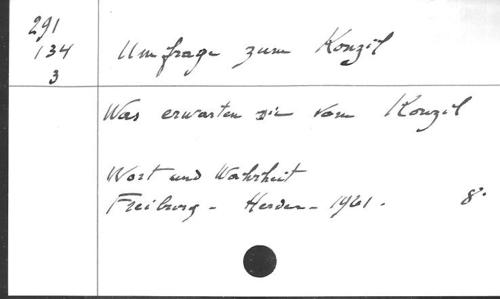 291
134
3
Umfrage zum Konzil
Was erwarten Sie vom Konzil
Wort und Wahrheit
Freiburg - Herder - 1961. 8°